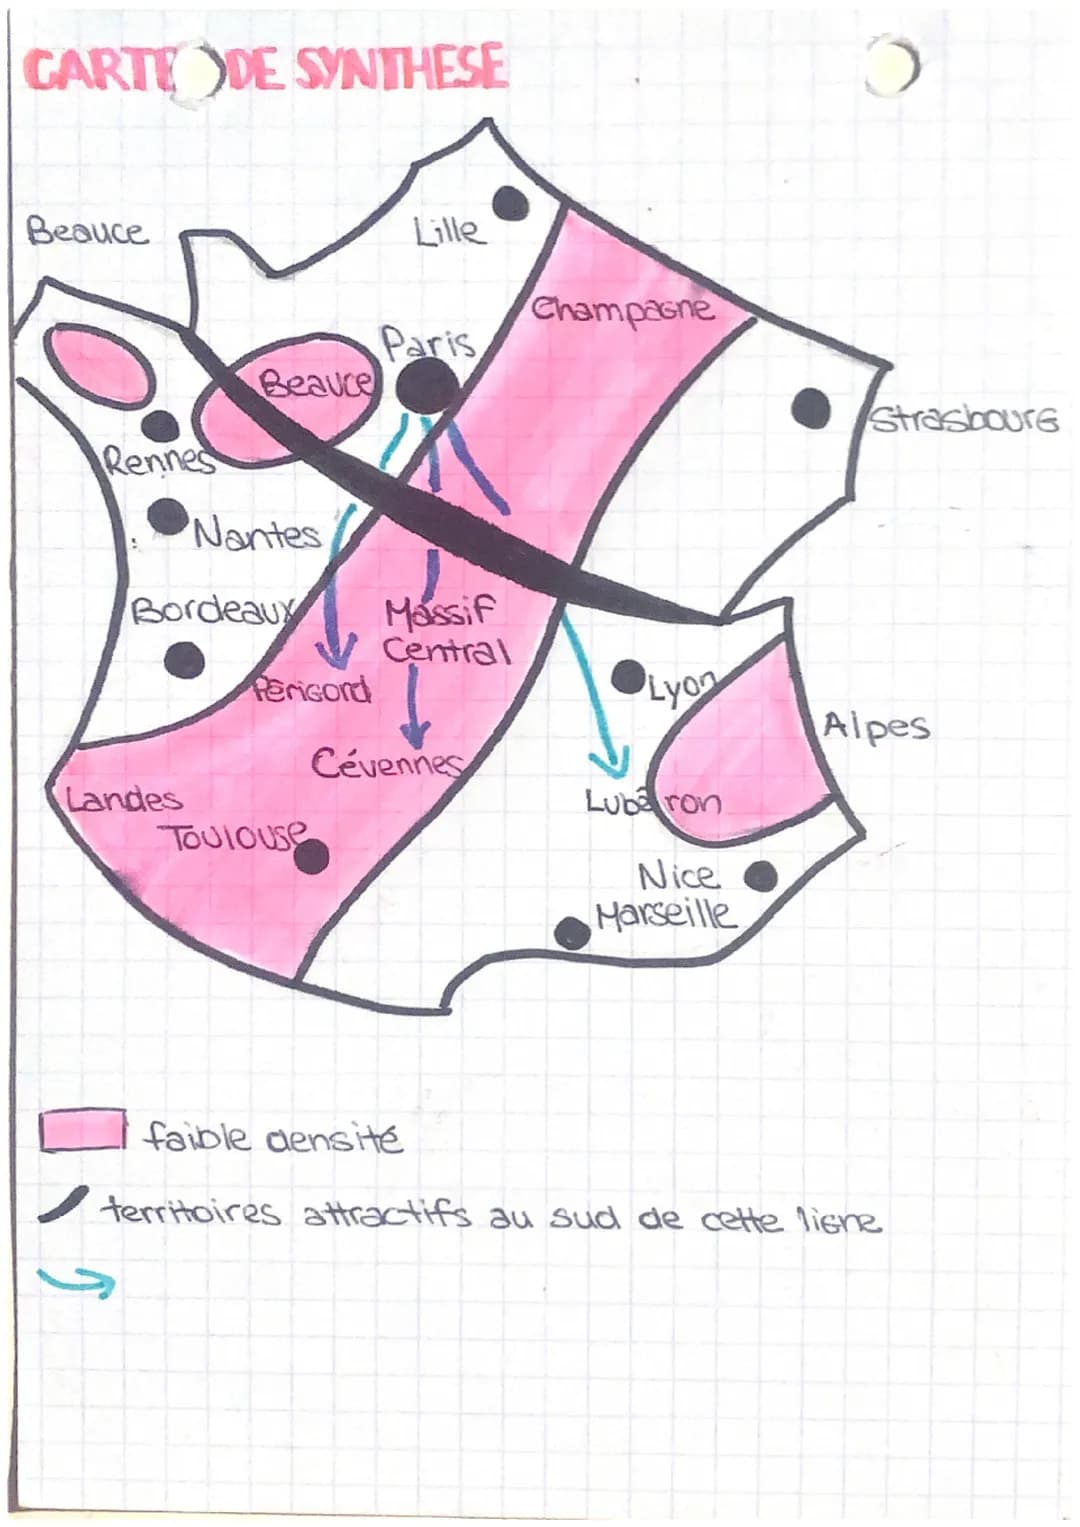 CARTE DE SYNTHESE
Beauce
Lille
Champagne
Paris
Beauce
Strasbourg
Rennes
Nantes
Bordeaux
Massif
Central
Périgord
Lyon
Alpes
Cévennes
Landes
Lubéron
Toulouse
Nice
Marseille
faible densité
territoires attractifs au sud de cette ligne